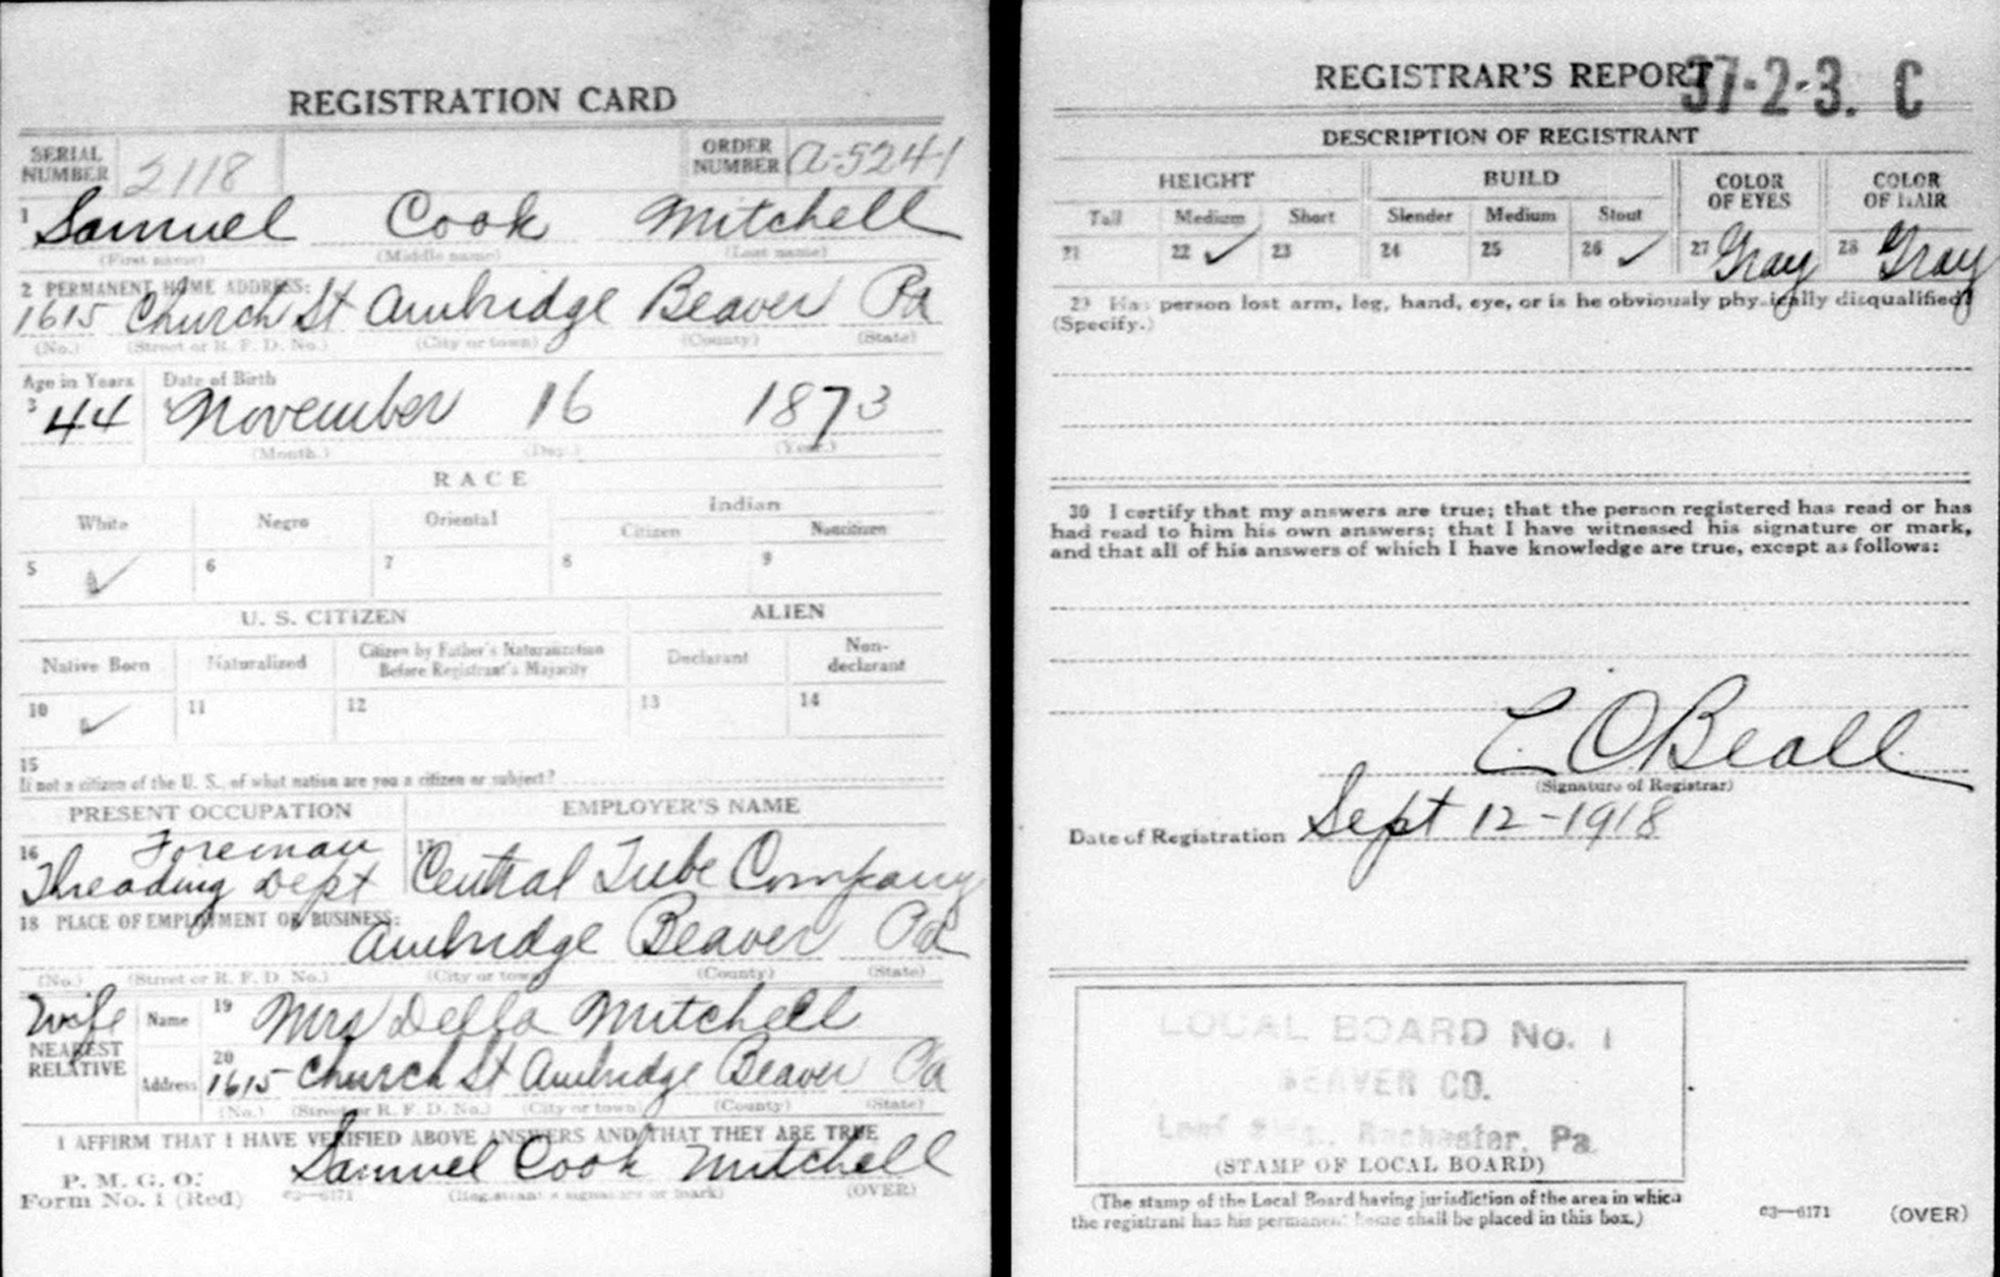 REGISTRATION CARD
SERIAL NUMBER 2118 ORDER NUMBER A-5241
1 Samuel Cook Mitchell
(First name) (Middle name) (Last name)
2 PERMANENT HOME ADDRESS:
1615 Church St Ambridge Beaver Pa
(No.) (Street or R. F. D. No.) (City or town) (County) (State)
Age in Years Date of Birth
3 44 November 16 1873
(Month.) (Day.) (Year.)
RACE
White Negro Oriental Indian
Citizen Noncitizen
5 ✓ 6 7 8 9
U. S. CITIZEN ALIEN
Native Born Naturalized Citizen by Father's Naturalization Before Registrant's Majority Declarant Non-declarant
10 ✓ 11 12 13 14
15
If not a citizen of the U. S., of what nation are you a citizen or subject?
PRESENT OCCUPATION EMPLOYER'S NAME
16 Foreman
Threading Dept 17 Central Tube Company
18 PLACE OF EMPLOYMENT OR BUSINESS:
Ambridge Beaver Pa
(No.) (Street or R. F. D. No.) (City or town) (County) (State)
Wife Name 19 Mrs Della Mitchell
NEAREST RELATIVE
Address 20 1615 Church St Ambridge Beaver Pa
(No.) (Street or R. F. D. No.) (City or town) (County) (State)
I AFFIRM THAT I HAVE VERIFIED ABOVE ANSWERS AND THAT THEY ARE TRUE
P. M. G. O.
Form No. 1 (Red) 03—6171 Samuel Cook Mitchell
(Registrant's signature or mark) (OVER)
REGISTRAR'S REPORT 37-2-3. C
DESCRIPTION OF REGISTRANT
HEIGHT BUILD COLOR OF EYES COLOR OF HAIR
Tall Medium Short Slender Medium Stout
21 22 ✓ 23 24 25 26 ✓ 27 Gray 28 Gray
29 Has person lost arm, leg, hand, eye, or is he obviously physically disqualified?
(Specify.)
30 I certify that my answers are true; that the person registered has read or has
had read to him his own answers; that I have witnessed his signature or mark,
and that all of his answers of which I have knowledge are true, except as follows:
L. O Beall
(Signature of Registrar)
Date of Registration Sept 12-1918
LOCAL BOARD No. 1
BEAVER CO.
Rochester, Pa.
(STAMP OF LOCAL BOARD)
(The stamp of the Local Board having jurisdiction of the area in which
the registrant has his permanent home shall be placed in this box.)
03—6171 (OVER)